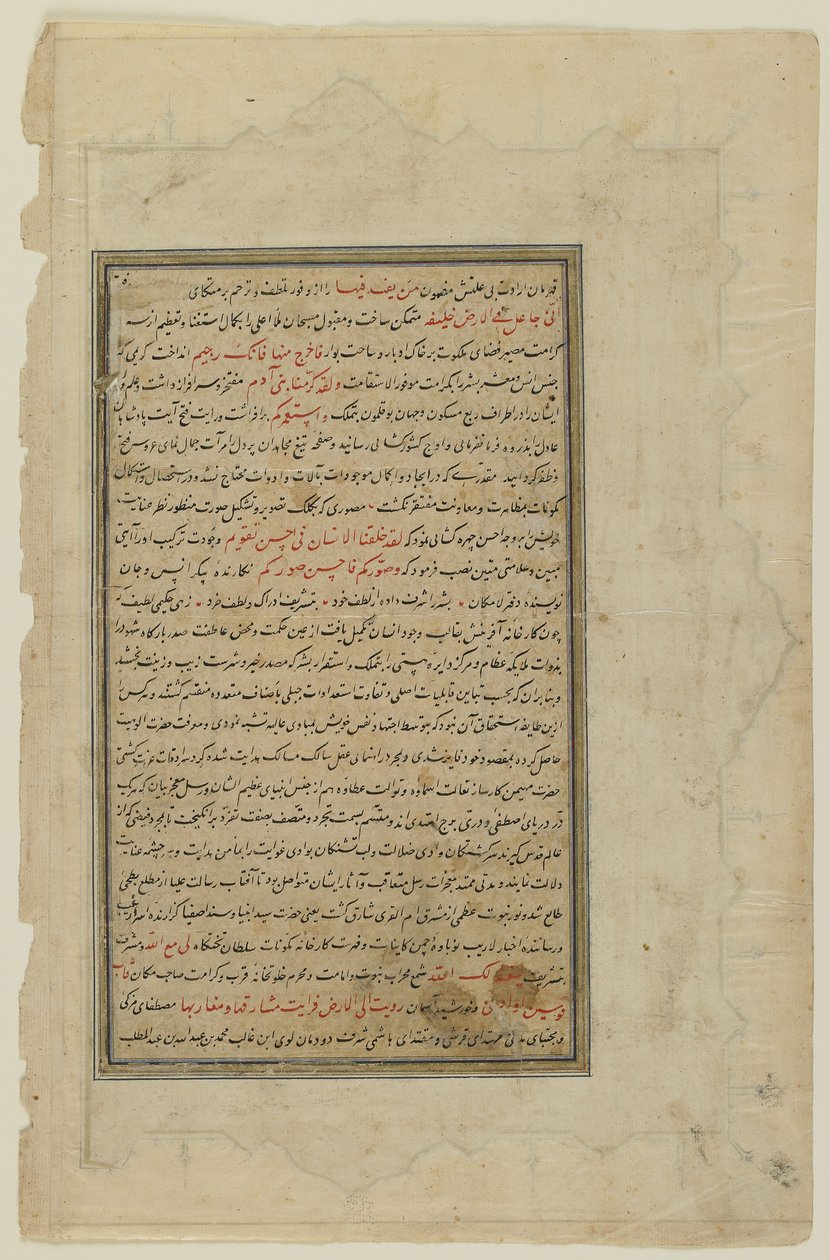 قهرمان ارادت بی علتش مضمون من یفسد فیها را از وفور تلطف و ترحم بر متکای
انی جاعل فی الارض خلیفه متمکن ساخت و مقبول مسبحان ملأ اعلی را بکمال استغنا و تعظیم از سه
کرامت مصیر فضای ملکوت بر خاک ادبار و ساحت بوار فاخرج منها فانک رجیم انداخت کریمی که
جنس انس و معشر بشر را بکرامت موفور الاستقامت و لقد کرمنا بنی آدم مفتخر و سرافراز داشت و علم
ایشان را در اطراف ربع مسکون و جهان بوقلمون بتملک و استعمرکم برافراشت و رایت فتح آیت پادشاهان
عادل را بذروه فرمانفرمائی و اوج کشورکشائی رسانید و صفحه تیغ مجاهدان پردل را مرآت جمال نمای عروس فتح
و ظفر گردانید مقدری که در ایجاد و اکمال موجودات بآلات و ادوات محتاج نشد و در استحصال و استکمال
مکونات بمظاهرت و معاونت مفتقر نگشت مصوری که بکلک تصویر و تشکیل صورت منظور نظر عنایت
خویش را بر وجه احسن چهره کشائی نمود که لقد خلقنا الانسان فی احسن تقویم و جودت ترکیب او را آیتی
مبین و علامتی متین نصب فرمود که و صورکم فاحسن صورکم نگارنده پیکر انس و جان
نویسنده دفتر لامکان بشر را شرف داده از لطف خود بتشریف ادراک و لطف خرد زهی حکیمی لطیف که
چون کارخانه آفرینش بقالب وجود انسان تکمیل یافت از عین حکمت و محض عاطفت صدر بارگاه شهود را
بذوات ملایکه عظام و مرکز دایره هستی را بتملک و استقرار بشر که مصدر خیر و شرست زیب و زینت بخشید
و بنابر آن که بحسب تباین قابلیات اصلی و تفاوت استعدادات جبلی باصناف متعدده منقسم گشتند و هر کس را
ازین طایفه استحقاق آن نبود که بتوسط اجتهاد نفس خویش بمبادی عالیه تشبه نمودی و معرفت حضرت الوهیت
حاصل کرده بمقصود خود فایز شدی و بمجرد راهنمائی عقل سالک مسالک هدایت شده گرد سرادقات عزت گشتی
حضرت مهیمن کارساز تعالت اسماؤه و توالت عطاؤه هم از جنس انبیای عظیم الشان و رسل معجز بیان که هر یک
در دریای اصطفی و دری برج اهتدی اند و متسم بسمت تجرد و متصف بصفت تفرد برانگیخت تا بمجرد فیضی که از
عالم قدس گیرند سرگشتگان وادی ضلالت و لب تشنگان بوادی غوایت را بمأمن هدایت و سرچشمه عنایت
دلالت نمایند و بدتی ممتد معجزات رسل متعاقب و آثار ایشان متواصل بود تا آفتاب رسالت علیا از مطلع بطحی
طالع شد و نور نبوت عظمی از مشرق ام القری شارق گشت یعنی حضرت سید انبیا و سند اصفیا گزارنده اسرار غیب
و رساننده اخبار لاریب نوباوه چمن کاینات و فهرست کارخانه مکونات سلطان تختگاه لی مع الله و مشرف
بتشریف لیغفر لک الله شمع محراب نبوت و امامت و محرم خلوتخانه قرب و کرامت صاحب مکان قاب
قوسین او ادنی و خورشید آسمان رویت الی الارض فرایت مشارقها و مغاربها مصطفای مزکی
و مجتبای مدنی قرشی و مقتدای هاشمی شرف دودمان لوی ابن غالب محمد بن عبدالله بن عبدالمطلب